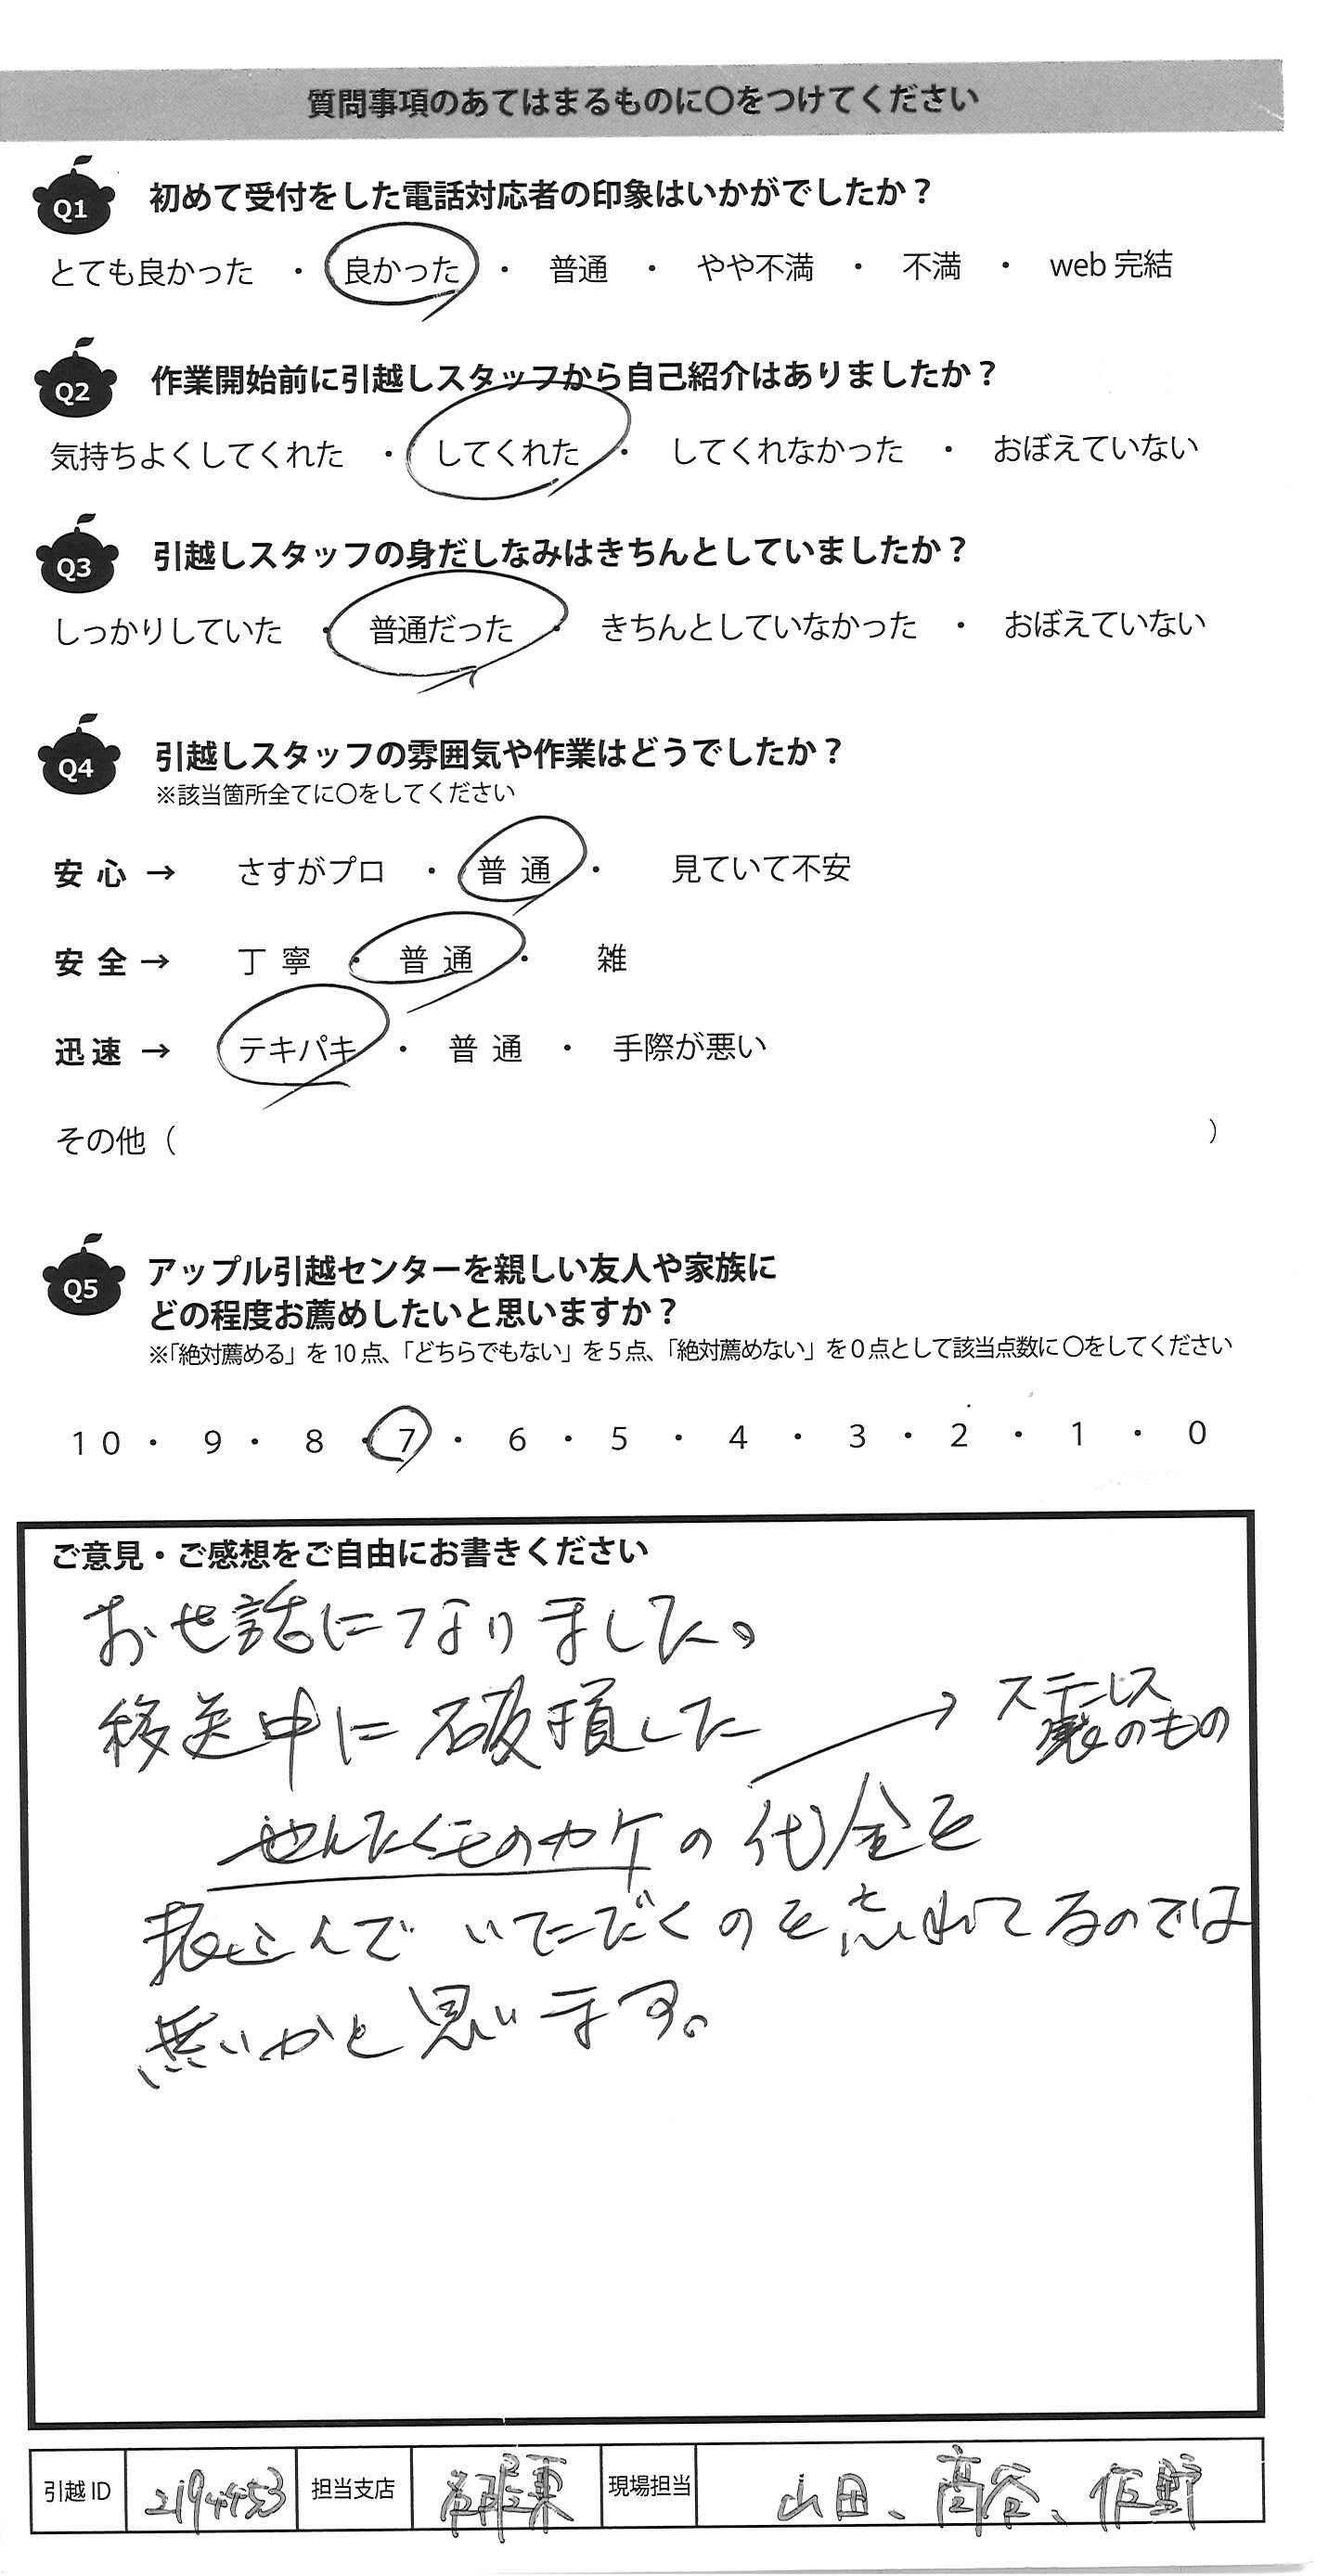 質問事項のあてはまるものに〇をつけてください
Q1 初めて受付をした電話対応者の印象はいかがでしたか？
とても良かった ・ 良かった ・ 普通 ・ やや不満 ・ 不満 ・ web完結
Q2 作業開始前に引越しスタッフから自己紹介はありましたか？
気持ちよくしてくれた ・ してくれた ・ してくれなかった ・ おぼえていない
Q3 引越しスタッフの身だしなみはきちんとしていましたか？
しっかりしていた ・ 普通だった ・ きちんとしていなかった ・ おぼえていない
Q4 引越しスタッフの雰囲気や作業はどうでしたか？
※該当箇所全てに〇をしてください
安心 → さすがプロ ・ 普通 ・ 見ていて不安
安全 → 丁寧 ・ 普通 ・ 雑
迅速 → テキパキ ・ 普通 ・ 手際が悪い
その他（ ）
Q5 アップル引越センターを親しい友人や家族に
どの程度お薦めしたいと思いますか？
※「絶対薦める」を10点、「どちらでもない」を5点、「絶対薦めない」を0点として該当点数に〇をしてください
10 ・ 9 ・ 8 ・ 7 ・ 6 ・ 5 ・ 4 ・ 3 ・ 2 ・ 1 ・ 0
ご意見・ご感想をご自由にお書きください
お世話になりました。
移送中に破損した → ステンレス
製のもの
せんたくものカケの代金を
振込んでいただくのを忘れてるのでは
無いかと思います。
引越ID 2194453 担当支店 名古屋東 現場担当 山田、髙谷、佐野